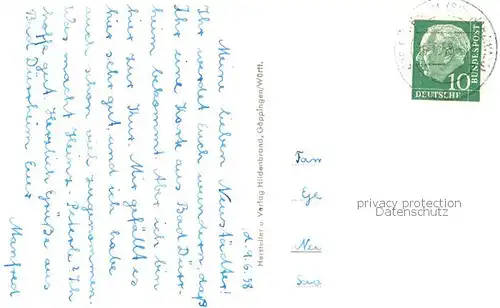 d. 9. 6. 58
Meine lieben Neustädter!
Ihr werdet Euch wundern, daß
Ihr eine Karte aus Bad Dürr-
heim bekommt. Aber ich bin
hier zur Kur. Mir gefällt es
hier sehr gut und ich habe
auch schon viel zugenommen.
Was macht Heinz, Peterle? Ihr
hoffe gut. Herzliche Grüße aus
Bad Dürrheim Euer
Manfred
Hersteller u. Verlag Hildenbrand, Göppingen/Württ.
DEUTSCHE
BUNDESPOST
10
Fam
Neu
privacy protection
Datenschutz